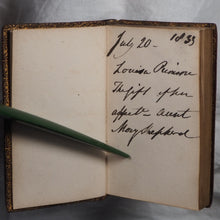 July 20 - 1833
Louisa Primrose
The Gift of her
affect. Aunt
Mary Shepherd